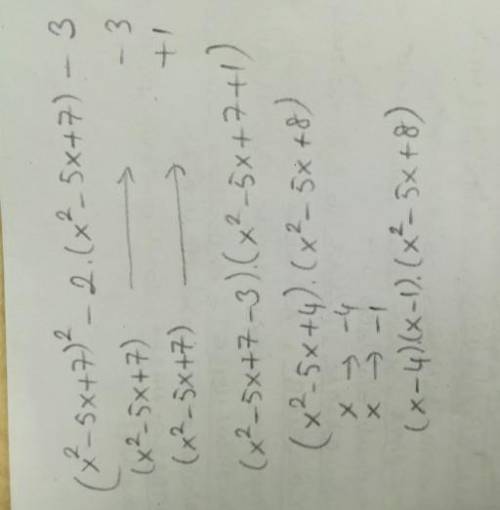 (x² - 5x + 7)² - 2.(x² - 5x + 7) - 3
(x² - 5x + 7) → - 3
(x² - 5x + 7) → + 1
(x² - 5x + 7 - 3).(x² - 5x + 7 + 1)
(x² - 5x + 4).(x² - 5x + 8)
x → -4
x → -1
(x - 4)(x - 1).(x² - 5x + 8)